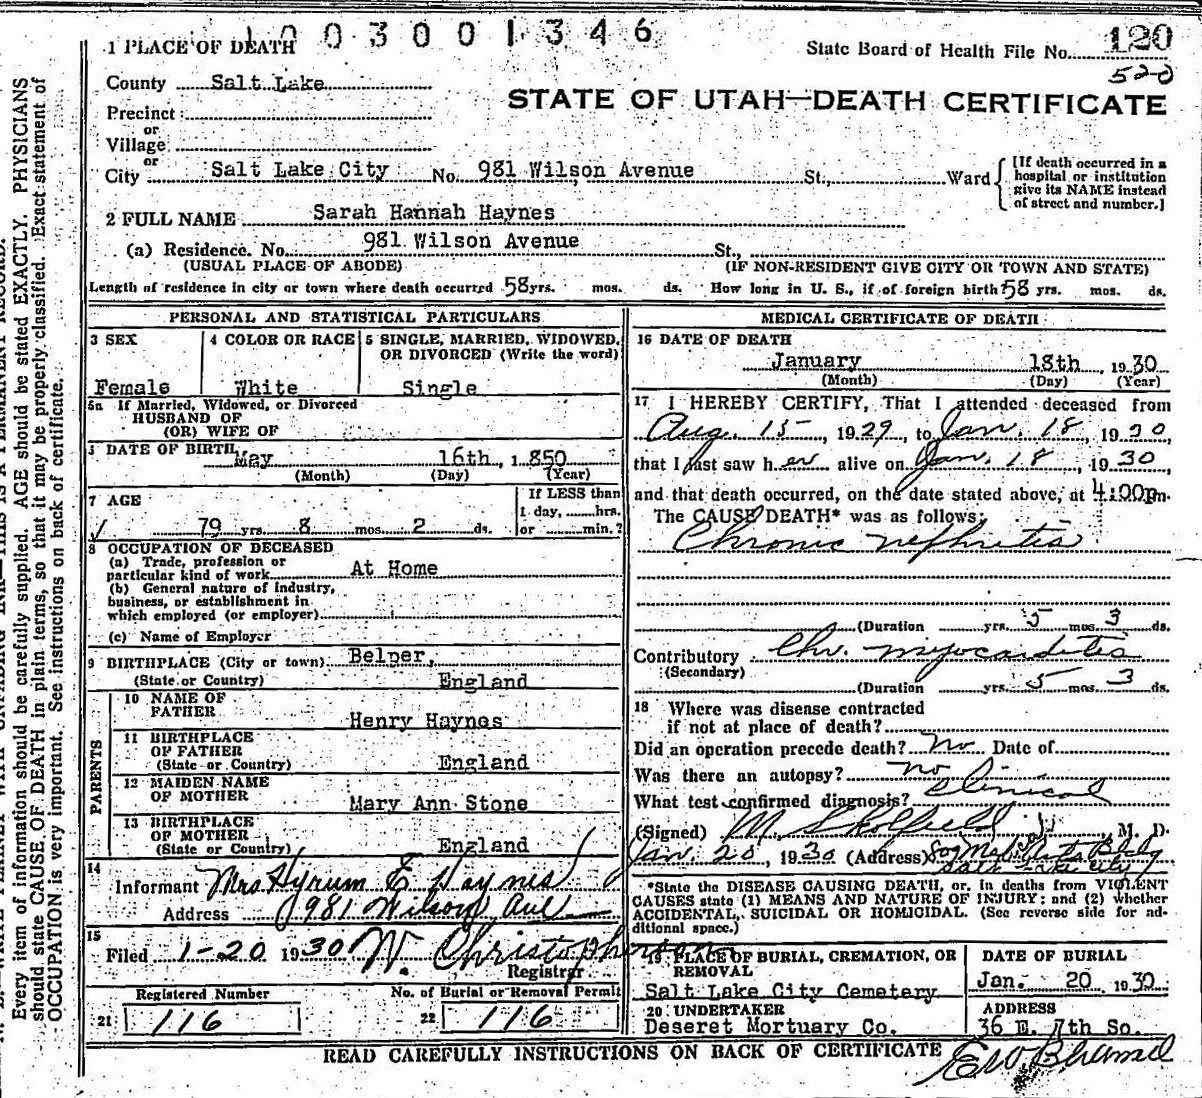 1003001346
1 PLACE OF DEATH
State Board of Health File No. 120
520
County Salt Lake
STATE OF UTAH—DEATH CERTIFICATE
Precinct
or
Village
or
City Salt Lake City No. 981 Wilson Avenue St., Ward
[If death occurred in a
hospital or institution
give its NAME instead
of street and number.]
2 FULL NAME Sarah Hannah Haynes
(a) Residence. No. 981 Wilson Avenue St.,
(USUAL PLACE OF ABODE) (IF NON-RESIDENT GIVE CITY OR TOWN AND STATE)
Length of residence in city or town where death occurred 58 yrs. mos. ds. How long in U. S., if of foreign birth 58 yrs. mos. ds.
PERSONAL AND STATISTICAL PARTICULARS
3 SEX
Female
4 COLOR OR RACE
White
5 SINGLE, MARRIED, WIDOWED,
OR DIVORCED (Write the word)
Single
5a If Married, Widowed, or Divorced
HUSBAND OF
(OR) WIFE OF
DATE OF BIRTH May 16th, 1850
(Month) (Day) (Year)
7 AGE
79 yrs. 8 mos. 2 ds.
If LESS than
1 day, hrs.
or min.?
8 OCCUPATION OF DECEASED
(a) Trade, profession or
particular kind of work At Home
(b) General nature of industry,
business, or establishment in
which employed (or employer)
(c) Name of Employer
9 BIRTHPLACE (City or town) Belper,
(State or Country) England
PARENTS
10 NAME OF
FATHER Henry Haynes
11 BIRTHPLACE
OF FATHER
(State or Country) England
12 MAIDEN NAME
OF MOTHER Mary Ann Stone
13 BIRTHPLACE
OF MOTHER
(State or Country) England
14
Informant Mrs Hyrum E Haynes
Address 981 Wilson Ave
15
Filed 1-20 1930 W. Christopherson
Registrar
Registered Number
21 116
No. of Burial or Removal Permit
22 116
MEDICAL CERTIFICATE OF DEATH
16 DATE OF DEATH
January 18th, 1930
(Month) (Day) (Year)
17 I HEREBY CERTIFY, That I attended deceased from
Aug. 15, 1929, to Jan. 18 1930
that I last saw her alive on Jan. 18, 1930
and that death occurred, on the date stated above, at 4:00pm.
The CAUSE DEATH* was as follows:
Chronic nephritis
(Duration yrs. 5 mos. 3 ds.
Contributory Chr. myocarditis
(Secondary)
(Duration yrs. 5 mos. 3 ds.
18 Where was disease contracted
if not at place of death?
Did an operation precede death? No Date of
Was there an autopsy? no
What test confirmed diagnosis? Clinical
(Signed) M. Skolfield, M. D.
Jan. 20, 1930 (Address)
*State the DISEASE CAUSING DEATH, or, in deaths from VIOLENT
CAUSES state (1) MEANS AND NATURE OF INJURY; and (2) whether
ACCIDENTAL, SUICIDAL OR HOMICIDAL. (See reverse side for ad-
ditional space.)
19 PLACE OF BURIAL, CREMATION, OR
REMOVAL
Salt Lake City Cemetery
DATE OF BURIAL
Jan. 20 1930
20 UNDERTAKER
Deseret Mortuary Co.
ADDRESS
36 E. 7th So.
READ CAREFULLY INSTRUCTIONS ON BACK OF CERTIFICATE
Every item of information should be carefully supplied. AGE should be stated EXACTLY. PHYSICIANS
should state CAUSE OF DEATH in plain terms, so that it may be properly classified. Exact statement of
OCCUPATION is very important. See instructions on back of certificate.